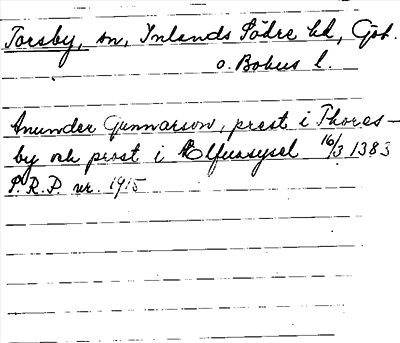 Torsby, sn, Inlands Södre hd, Göt.
o. Bohus l.
Anunder Gunnarson, prest i Thores-
by och prost i Elfuasysel 16/3 1383
S.R.P. nr. 1915